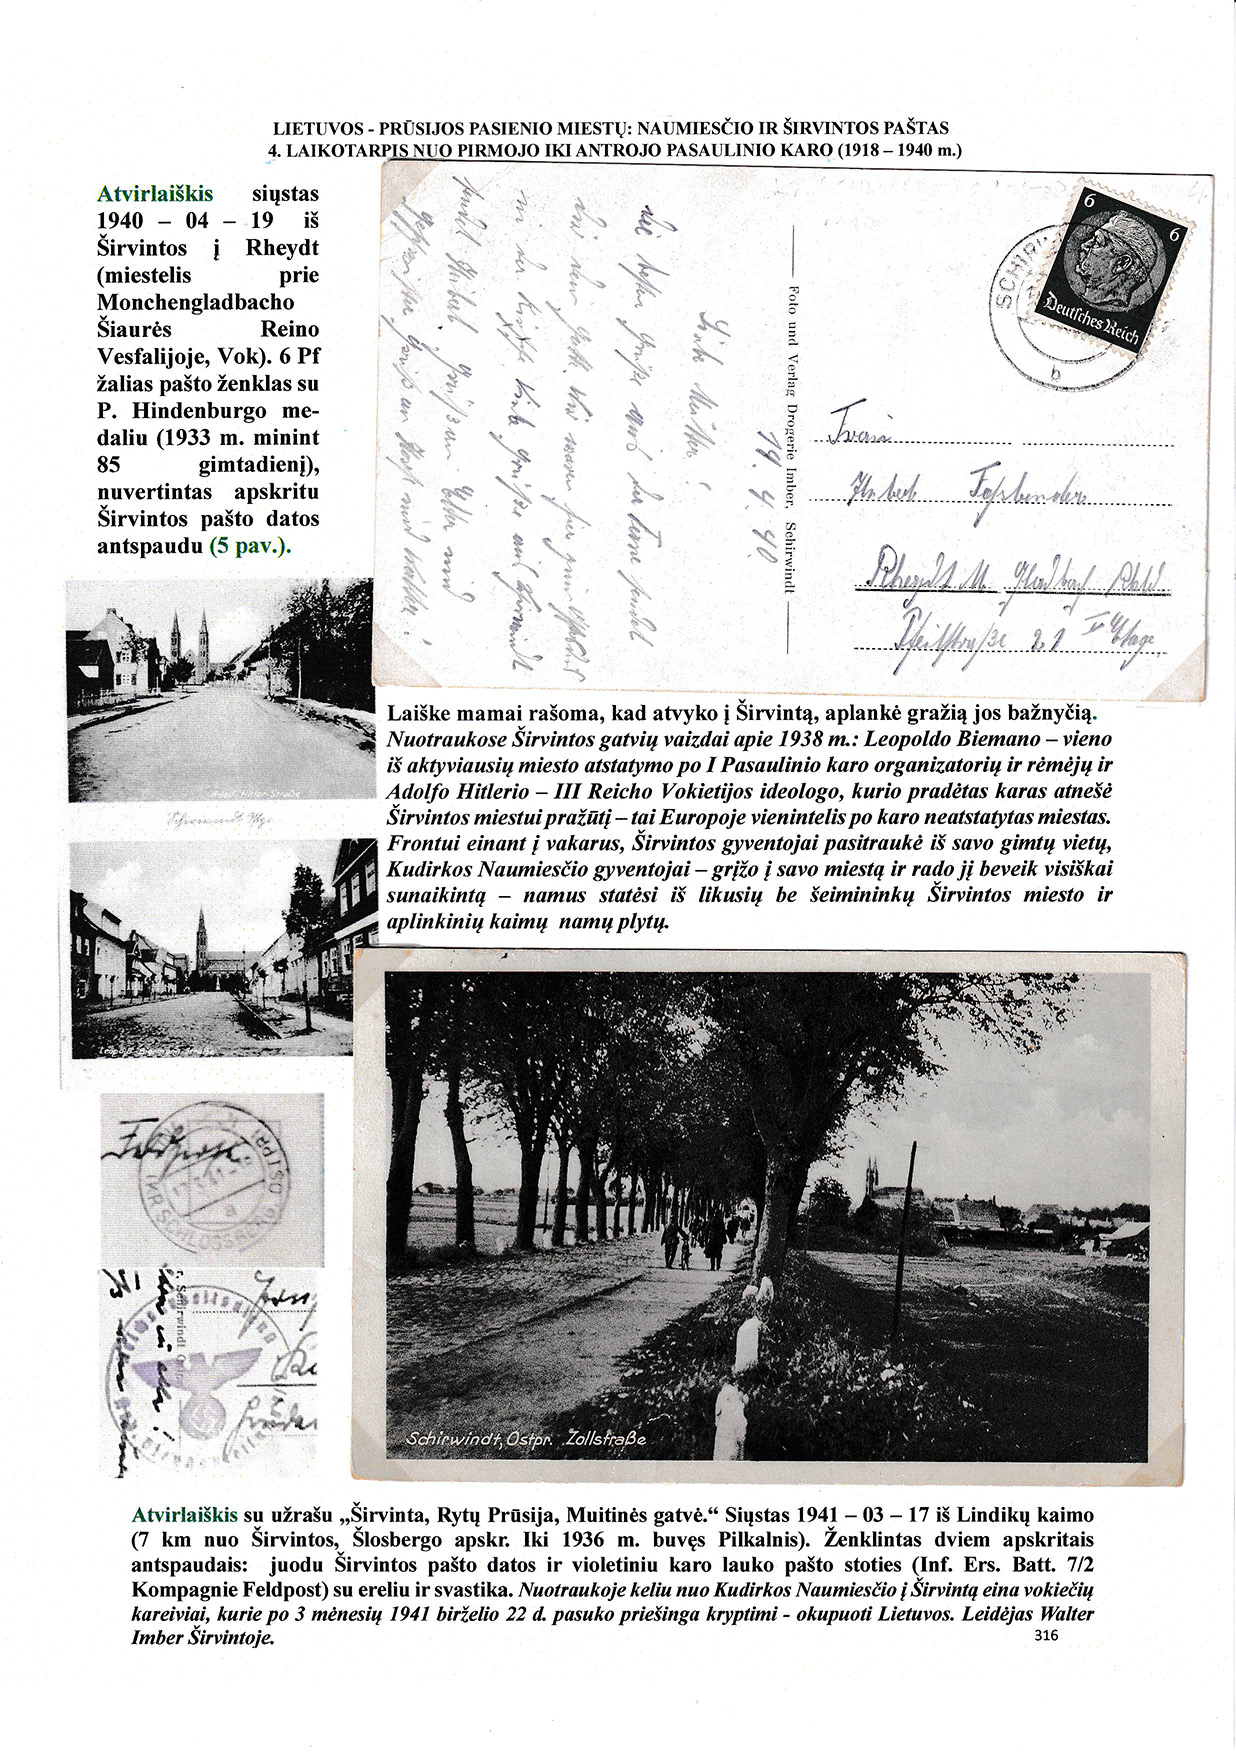 LIETUVOS - PRŪSIJOS PASIENIO MIESTŲ: NAUMIESČIO IR ŠIRVINTOS PAŠTAS
4. LAIKOTARPIS NUO PIRMOJO IKI ANTROJO PASAULINIO KARO (1918 – 1940 m.)
Atvirlaiškis siųstas
1940 – 04 – 19 iš
Širvintos į Rheydt
(miestelis prie
Monchengladbacho
Šiaurės Reino
Vesfalijoje, Vok). 6 Pf
žalias pašto ženklas su
P. Hindenburgo me-
daliu (1933 m. minint
85 gimtadienį),
nuvertintas apskritu
Širvintos pašto datos
antspaudu (5 pav.).
6 6
Deutsches Reich
SCHIRW
b
Foto und Verlag Drogerie Imber, Schirwindt
19. 4. 40.
Liebe Mutter!
Die besten Grüße aus der Ferne sendet
Frau
Hubert Faßbender
Rheydt M Gladbach Rhld
21 II Etage
Adolf-Hitler-Straße
Laiške mamai rašoma, kad atvyko į Širvintą, aplankė gražią jos bažnyčią.
Nuotraukose Širvintos gatvių vaizdai apie 1938 m.: Leopoldo Biemano – vieno
iš aktyviausių miesto atstatymo po I Pasaulinio karo organizatorių ir rėmėjų ir
Adolfo Hitlerio – III Reicho Vokietijos ideologo, kurio pradėtas karas atnešė
Širvintos miestui pražūtį – tai Europoje vienintelis po karo neatstatytas miestas.
Frontui einant į vakarus, Širvintos gyventojai pasitraukė iš savo gimtų vietų,
Kudirkos Naumiesčio gyventojai – grįžo į savo miestą ir rado jį beveik visiškai
sunaikintą – namus statėsi iš likusių be šeimininkų Širvintos miesto ir
aplinkinių kaimų namų plytų.
Feldpost
Schirwindt
Schirwindt, Ostpr. Zollstraße
Atvirlaiškis su užrašu „Širvinta, Rytų Prūsija, Muitinės gatvė.“ Siųstas 1941 – 03 – 17 iš Lindikų kaimo
(7 km nuo Širvintos, Šlosbergo apskr. Iki 1936 m. buvęs Pilkalnis). Ženklintas dviem apskritais
antspaudais: juodu Širvintos pašto datos ir violetiniu karo lauko pašto stoties (Inf. Ers. Batt. 7/2
Kompagnie Feldpost) su ereliu ir svastika. Nuotraukoje keliu nuo Kudirkos Naumiesčio į Širvintą eina vokiečių
kareiviai, kurie po 3 mėnesių 1941 birželio 22 d. pasuko priešinga kryptimi - okupuoti Lietuvos. Leidėjas Walter
Imber Širvintoje.
316